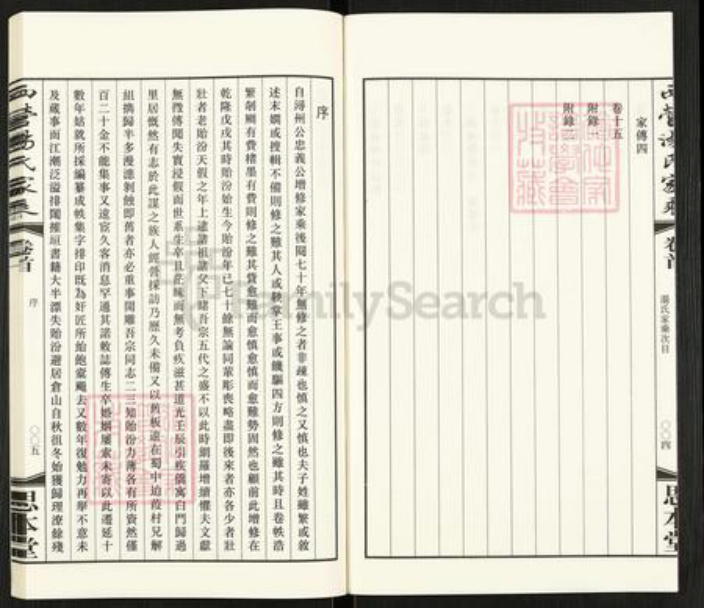 家傳四
卷十五
附錄一
附錄二
西營湯氏家乘
卷首
湯氏家乘次目
〇〇四
思本堂
序
自潯州公忠義公增修家乘後閱七十年無修之者非疎也慎之又慎也夫子姓雖繁或敘
述未嫻或搜輯不備則修之難其人或鞅掌王事或饑驅四方則修之難其時且卷帙浩
繁剞劂有費楮墨有費則修之難其費愈難而愈慎愈慎而愈難勢固然也顧前此增修在
乾隆戊戌其時貽汾始生今貽汾年已七十餘無論同輩彫喪略盡即後來者亦各少者壯
壯者老貽汾天假之年上逮諸祖諸父下睹吾宗五代之盛不以此時網羅增續懼夫文獻
無徵傳聞失實浸假而世系生卒且茫昧而無考負疚滋甚道光壬辰引疾僑寓白門歸過
里居慨然有志於此謀之族人經營採訪乃歷久未備又以舊板遠在蜀中迨葭村兄解
組攜歸半多漫漶剝蝕即舊者亦必重事開雕吾宗同志二三知貽汾力薄各有所資然僅
百二十金不能集事又遠宦久客消息罕通其諾敕誌傳生卒婚姻屢索未寄以此遷延十
數年姑就所採編纂成帙集字排印既為奸匠所紿飽橐颺去又數年復勉力再舉不意未
及蕆事而江潮泛溢排闥摧垣書籍大半漂失貽汾避居倉山自秋徂冬始獲歸理潦餘殘
西營湯氏家乘
卷首
序
〇〇五
思本堂
FamilySearch